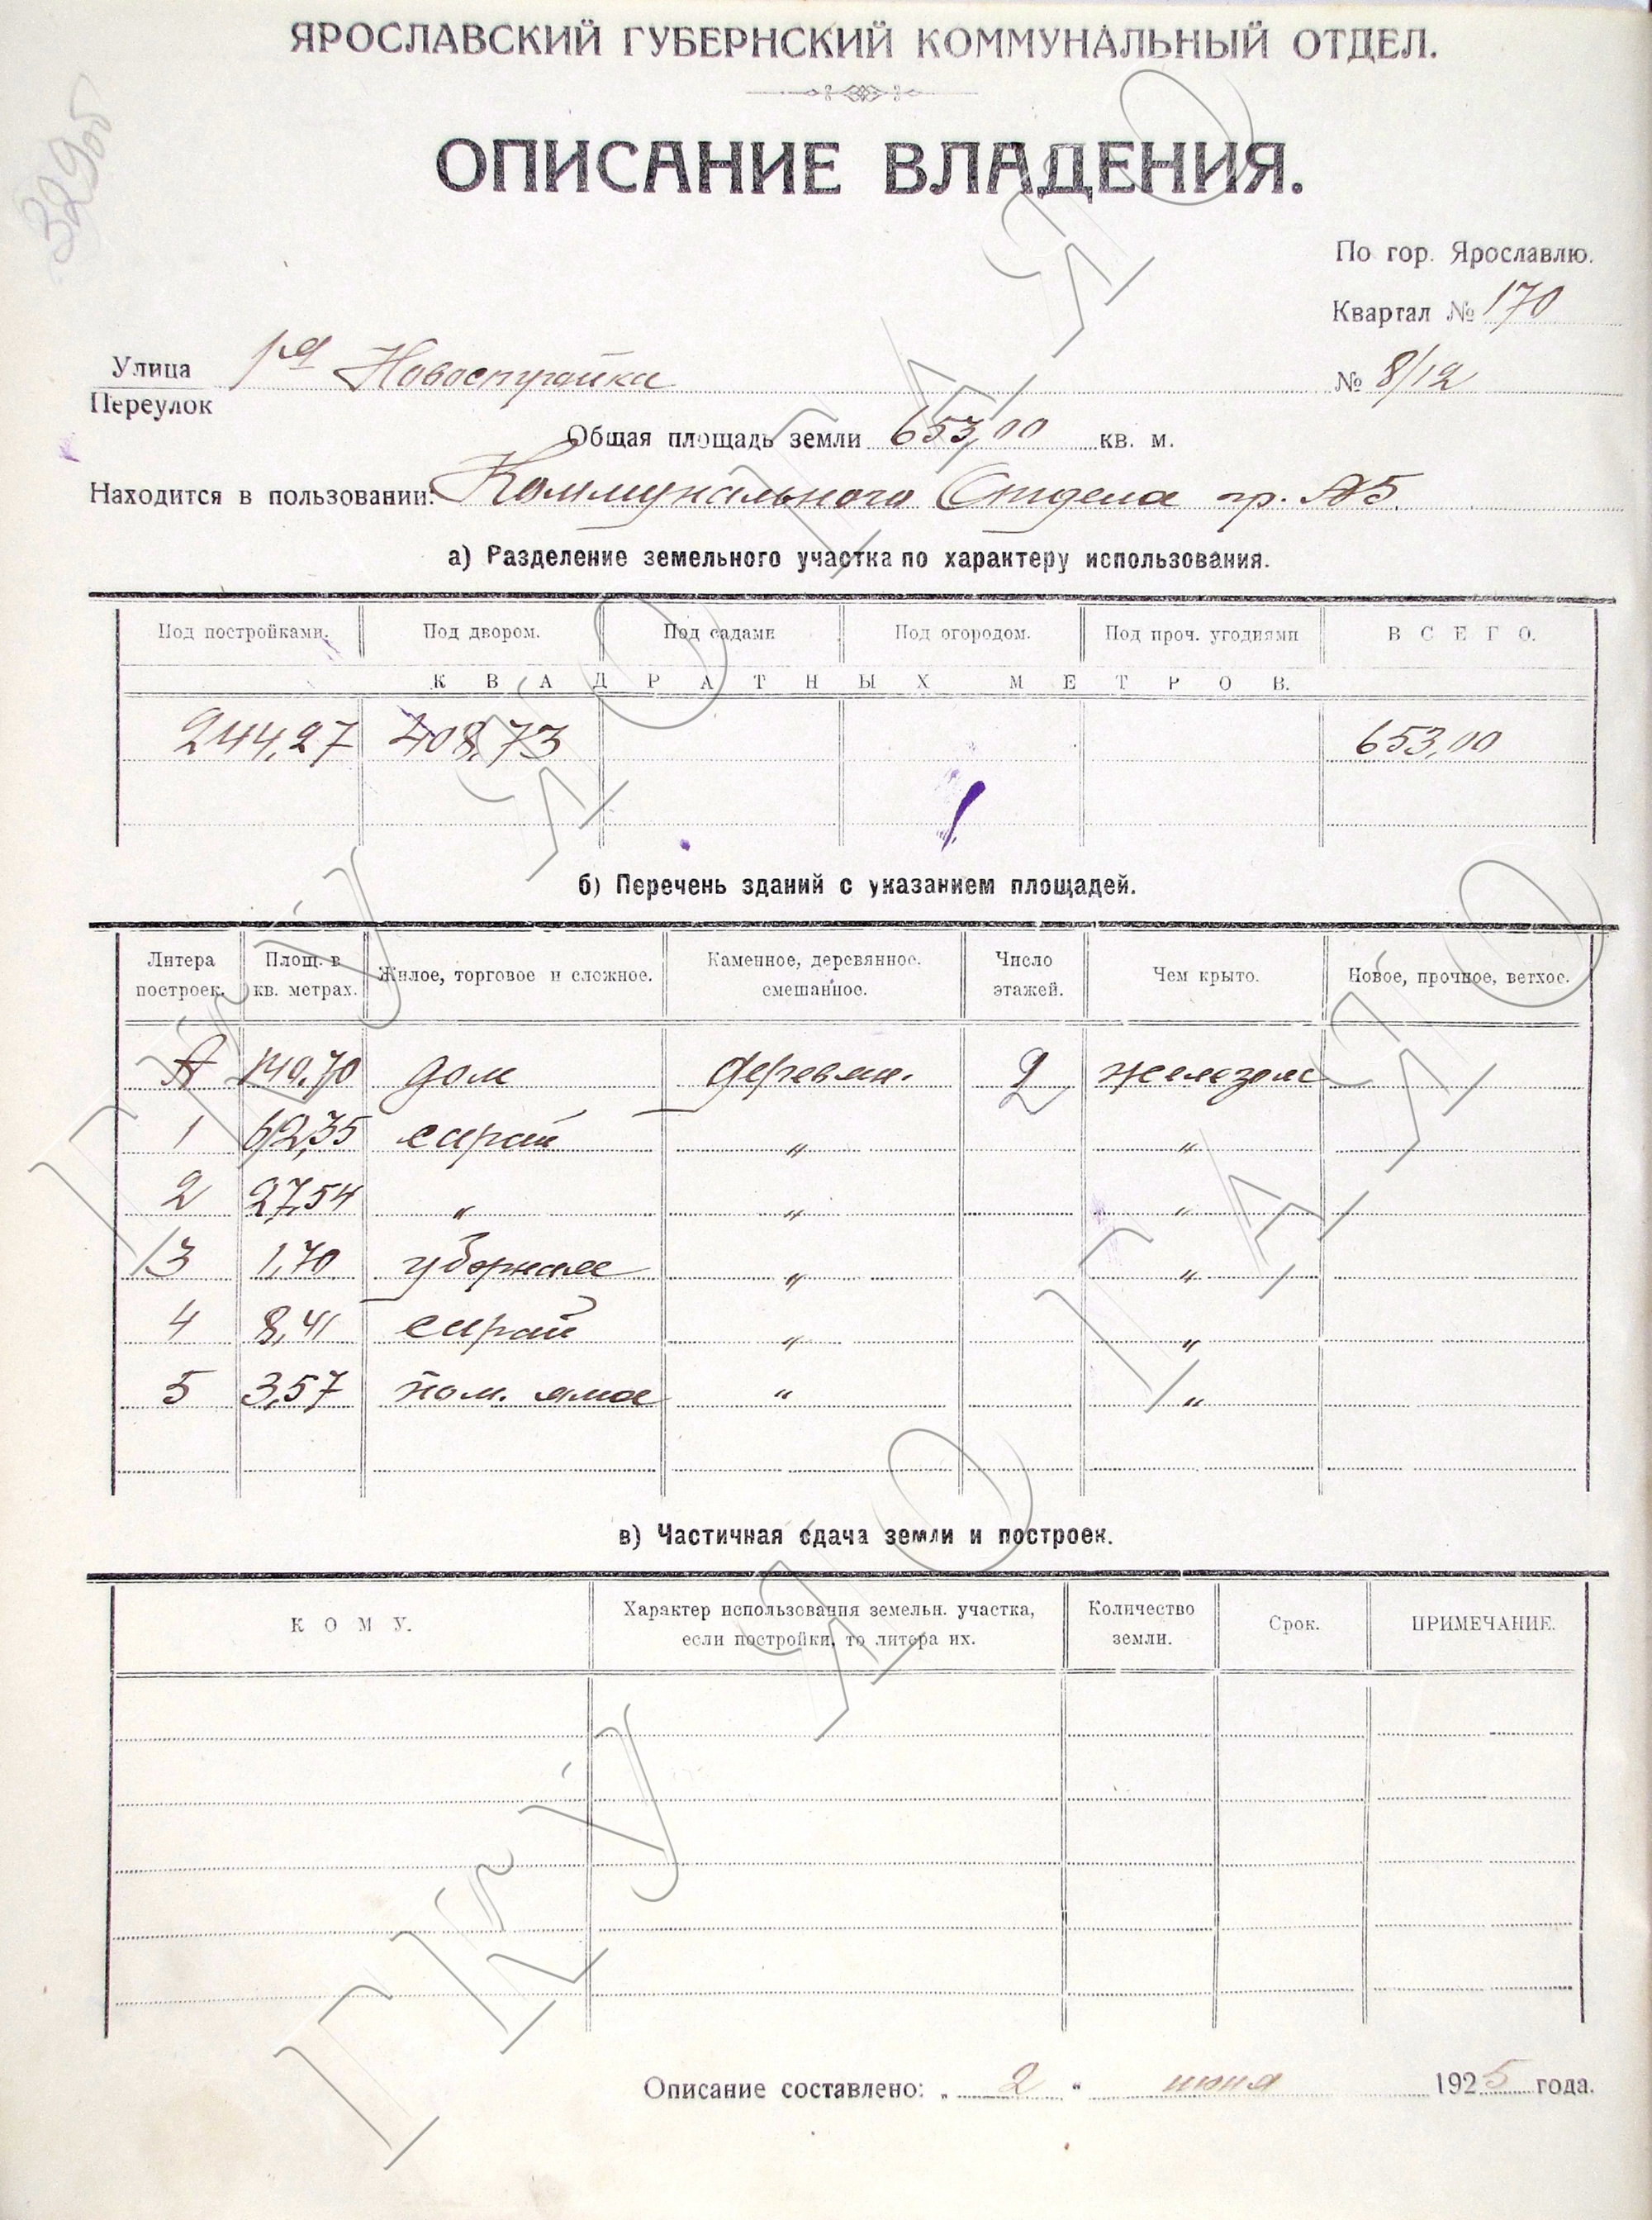 329об
ЯРОСЛАВСКИЙ ГУБЕРНСКИЙ КОММУНАЛЬНЫЙ ОТДЕЛ.
ОПИСАНИЕ ВЛАДЕНИЯ.
По гор. Ярославлю.
Квартал № 170
Улица 1ая Новостройка № 8/12
Переулок
Общая площадь земли 653,00 кв. м.
Находится в пользовании: Коммунального Отдела гр. А5.
а) Разделение земельного участка по характеру использования.
Под постройками. Под двором. Под садами Под огородом. Под проч. угодиями ВСЕГО.
КВАДРАТНЫХ МЕТРОВ.
244,27 408,73 653,00
б) Перечень зданий с указанием площадей.
Литера построек. Площ. в кв. метрах. Жилое, торговое и сложное. Каменное, деревянное. смешанное. Число этажей. Чем крыто. Новое, прочное, ветхое.
А 140,70 дом деревян. 2 железом
1 62,35 сарай " "
2 27,54 " " "
3 1,70 уборная " "
4 8,41 сарай " "
5 3,57 пом. яма " "
в) Частичная сдача земли и построек.
КОМУ. Характер использования земельн. участка, если постройки, то литера их. Количество земли. Срок. ПРИМЕЧАНИЕ.
Описание составлено: „ 2 " июня 1925 года.
ГКУ ЯО ГАЯО
ГКУ ЯО ГАЯО